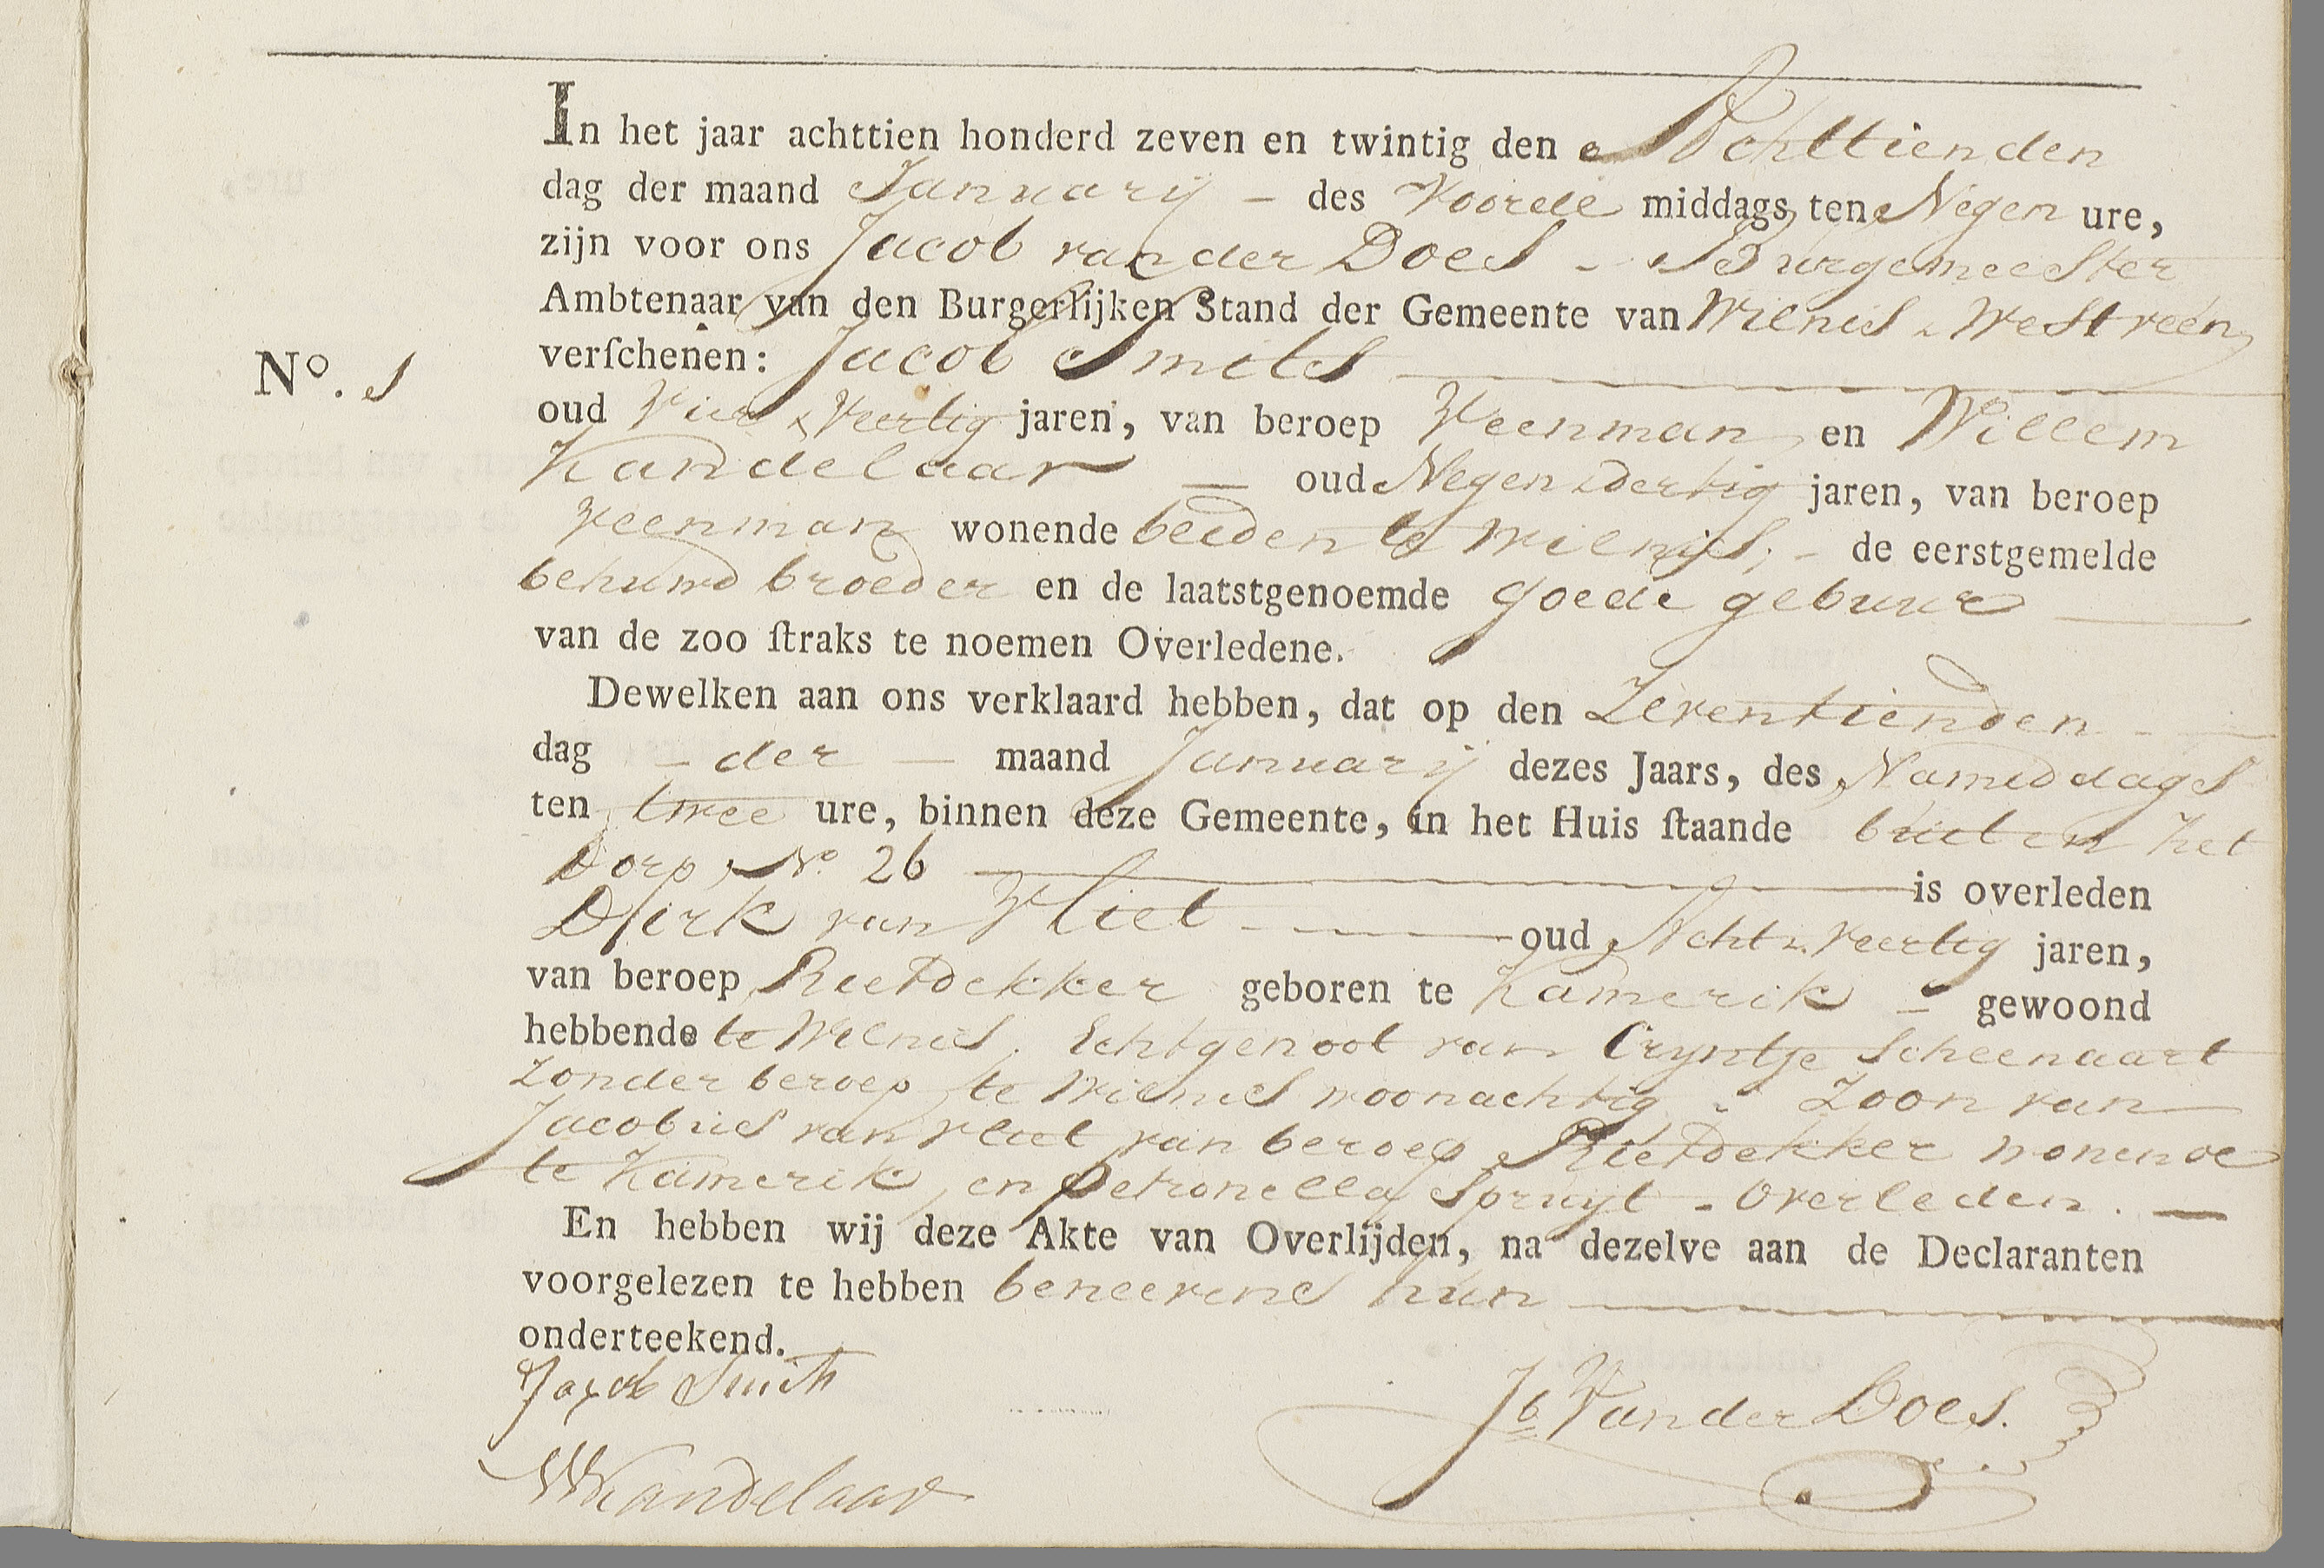 In het jaar achttien honderd zeven en twintig den Achttienden
dag der maand Januarij – des Voorde middags, ten Negen ure,
zijn voor ons Jacob van der Does – Burgemeester
Ambtenaar van den Burgerlijken Stand der Gemeente van Wilnis & Westveen
verſchenen: Jacob Smits
No. 1
oud Vier & Veertig jaren, van beroep Veenman, en Willem
Kandelaar — oud Negen & dertig jaren, van beroep
Veenman wonende beiden te Wilnis; – de eerstgemelde
behuwd broeder en de laatstgenoemde goede gebuur
van de zoo ſtraks te noemen Overledene.
Dewelken aan ons verklaard hebben, dat op den Zeventienden
dag – der — maand Januarij dezes Jaars, des Namiddags
ten twee ure, binnen deze Gemeente, in het Huis ſtaande buiten het
Dorp, No 26 is overleden
Dirk van Vliet oud Acht & Veertig jaren,
van beroep Rietdekker geboren te Kamerik – gewoond
hebbende te Wilnis. Echtgenoot van Cryntje Scheenaart
Zonder beroep, te Wilnis woonachtig – Zoon van
Jacobus van Vliet van beroep Rietdekker wonende
te Kamerik, en Petronella Spruyt – Overleden. —
En hebben wij deze Akte van Overlijden, na dezelve aan de Declaranten
voorgelezen te hebben beneevens hun
onderteekend.
Jacob Smith
Jb Van der Does.
W Kandelaar